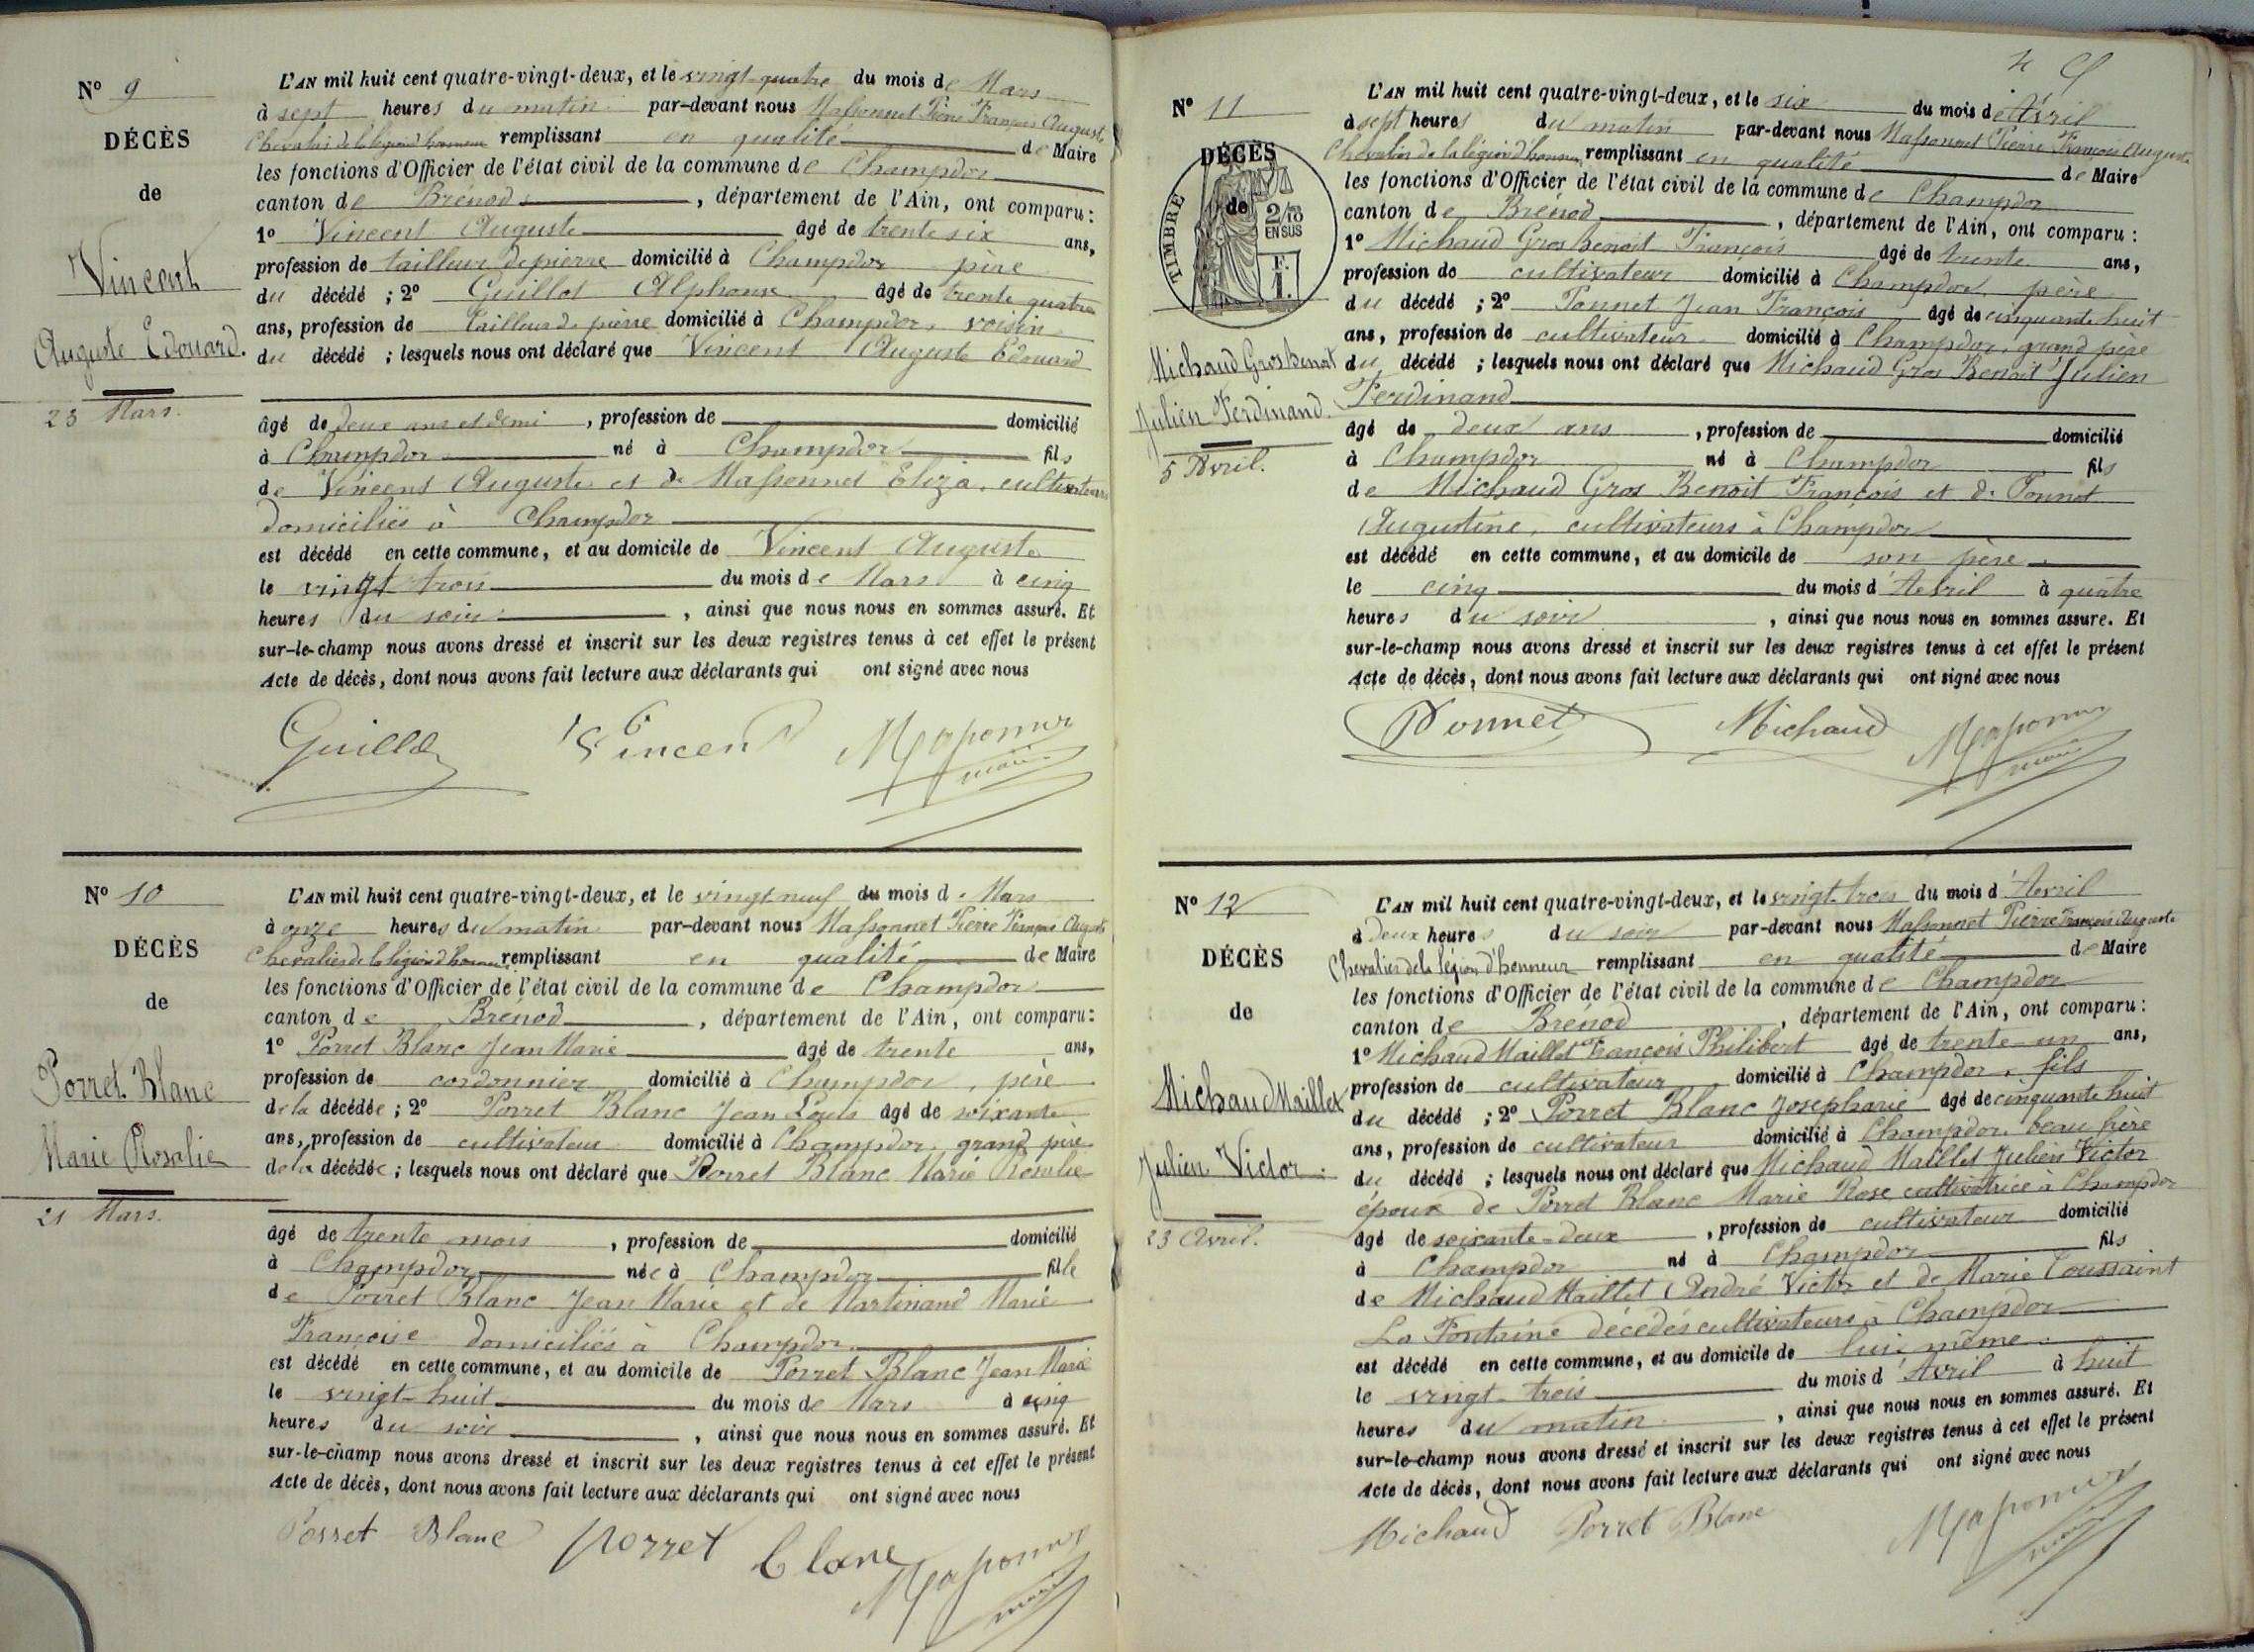 N° 9
DÉCÈS
de
Vincent
Auguste Edouard.
23 Mars.
L'AN mil huit cent quatre-vingt-deux, et le vingt-quatre du mois de Mars
à sept heures du matin par-devant nous Massonnet Pierre François Auguste
Chevalier de la légion d'honneur remplissant en qualité de Maire
les fonctions d'Officier de l'état civil de la commune de Champdor
canton de Brénod, département de l'Ain, ont comparu :
1° Vincent Auguste âgé de trente six ans,
profession de tailleur de pierre domicilié à Champdor père
du décédé ; 2° Guillot Alphonse âgé de trente quatre
ans, profession de tailleur de pierre domicilié à Champdor, voisin
du décédé ; lesquels nous ont déclaré que Vincent Auguste Edouard
âgé de deux ans et demi, profession de domicilié
à Champdor né à Champdor fils
de Vincent Auguste et de Massonnet Eliza, cultivateurs
domiciliés à Champdor
est décédé en cette commune, et au domicile de Vincent Auguste
le vingt trois du mois de Mars à cinq
heures du soir, ainsi que nous nous en sommes assuré. Et
sur-le-champ nous avons dressé et inscrit sur les deux registres tenus à cet effet le présent
Acte de décès, dont nous avons fait lecture aux déclarants qui ont signé avec nous
Guillot Vincent Massonnet
maire
N° 10
DÉCÈS
de
Porret Blanc
Marie Rosalie
21 Mars.
L'AN mil huit cent quatre-vingt-deux, et le vingt neuf du mois de Mars
à onze heures du matin par-devant nous Massonnet Pierre François Auguste
Chevalier de la légion d'honneur remplissant en qualité de Maire
les fonctions d'Officier de l'état civil de la commune de Champdor
canton de Brénod, département de l'Ain, ont comparu :
1° Porret Blanc Jean Marie âgé de trente ans,
profession de cordonnier domicilié à Champdor, père
de la décédée ; 2° Porret Blanc Jean Louis âgé de soixante
ans, profession de cultivateur domicilié à Champdor, grand père
de la décédée ; lesquels nous ont déclaré que Porret Blanc Marie Rosalie
âgé de trente mois, profession de domicilié
à Champdor née à Champdor fille
de Porret Blanc Jean Marie et de Martinand Marie
Françoise domiciliés à Champdor
est décédé en cette commune, et au domicile de Porret Blanc Jean Marie
le vingt-huit du mois de Mars à cinq
heures du soir, ainsi que nous nous en sommes assuré. Et
sur-le-champ nous avons dressé et inscrit sur les deux registres tenus à cet effet le présent
Acte de décès, dont nous avons fait lecture aux déclarants qui ont signé avec nous
Porret Blanc porret blanc Massonnet
maire
N° 11
DÉCÈS
de
TIMBRE
2/10
EN SUS
F.
1.
Michaud Gros benoit
Julien Ferdinand.
5 Avril.
L'AN mil huit cent quatre-vingt-deux, et le six du mois d'Avril
à sept heures du matin par-devant nous Massonnet Pierre François Auguste
Chevalier de la légion d'honneur remplissant en qualité de Maire
les fonctions d'Officier de l'état civil de la commune de Champdor
canton de Brénod, département de l'Ain, ont comparu :
1° Michaud Gros benoit François âgé de trente ans,
profession de cultivateur domicilié à Champdor, père
du décédé ; 2° Ponnet Jean François âgé de cinquante huit
ans, profession de cultivateur domicilié à Champdor, grand père
du décédé ; lesquels nous ont déclaré que Michaud Gros Benoit Julien
Ferdinand
âgé de deux ans, profession de domicilié
à Champdor né à Champdor fils
de Michaud Gros Benoit François et de Ponnet
Augustine, cultivateurs à Champdor
est décédé en cette commune, et au domicile de son père
le cinq du mois d'Avril à quatre
heures du soir, ainsi que nous nous en sommes assuré. Et
sur-le-champ nous avons dressé et inscrit sur les deux registres tenus à cet effet le présent
Acte de décès, dont nous avons fait lecture aux déclarants qui ont signé avec nous
Ponnet Michaud Massonnet
maire
N° 12
DÉCÈS
de
Michaud Maillet
Julien Victor.
23 Avril.
L'AN mil huit cent quatre-vingt-deux, et le vingt-trois du mois d'Avril
à deux heures du soir par-devant nous Massonnet Pierre François Auguste
Chevalier de la légion d'honneur remplissant en qualité de Maire
les fonctions d'Officier de l'état civil de la commune de Champdor
canton de Brénod, département de l'Ain, ont comparu :
1° Michaud Maillet François Philibert âgé de trente-un ans,
profession de cultivateur domicilié à Champdor, fils
du décédé ; 2° Porret Blanc Joseph Marie âgé de cinquante huit
ans, profession de cultivateur domicilié à Champdor, beau frère
du décédé ; lesquels nous ont déclaré que Michaud Maillet Julien Victor
époux de Porret Blanc Marie Rose cultivatrice à Champdor
âgé de soixante-deux, profession de cultivateur domicilié
à Champdor né à Champdor fils
de Michaud Maillet André Victor et de Marie Toussaint
La Fontaine décédés cultivateurs à Champdor
est décédé en cette commune, et au domicile de lui-même
le vingt-trois du mois d'Avril à huit
heures du matin, ainsi que nous nous en sommes assuré. Et
sur-le-champ nous avons dressé et inscrit sur les deux registres tenus à cet effet le présent
Acte de décès, dont nous avons fait lecture aux déclarants qui ont signé avec nous
Michaud Porret Blanc Massonnet
maire